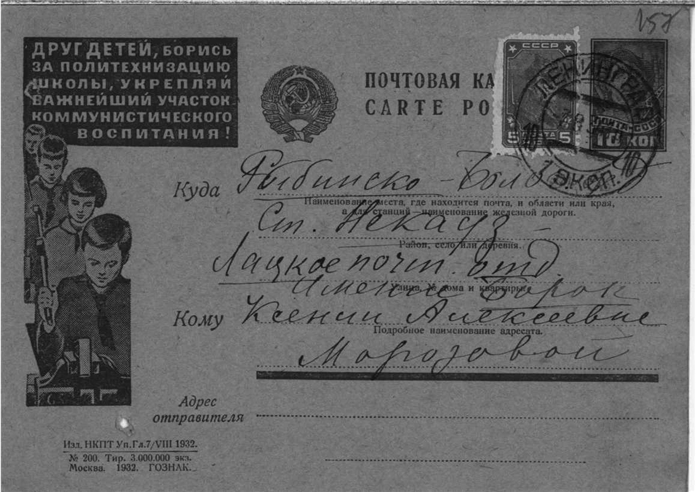 157
ДРУГ ДЕТЕЙ, БОРИСЬ
ЗА ПОЛИТЕХНИЗАЦИЮ
ШКОЛЫ, УКРЕПЛЯЙ
ВАЖНЕЙШИЙ УЧАСТОК
КОММУНИСТИЧЕСКОГО
ВОСПИТАНИЯ!
ПОЧТОВАЯ КА
CARTE PO
СССР
5 ПОЧТА 5
ПОЧТА СССР
10 КОП
ЛЕНИНГРАД
10 10
1 ЭКСП.
Куда Рыбинско-Боло
Наименование места, где находится почта, и области или края,
а для станций—наименование железной дороги.
Ст. Некоуз
Район, село или деревня.
Лацкое почт. отд.
Улица, № дома и квартиры
Имение Борок
Кому Ксении Алексеевне
Подробное наименование адресата.
Морозовой
Адрес
отправителя
Изд. НКПТ Уп. Гл. 7/VIII 1932.
№ 200. Тир. 3.000.000 экз.
Москва. 1932. ГОЗНАК.